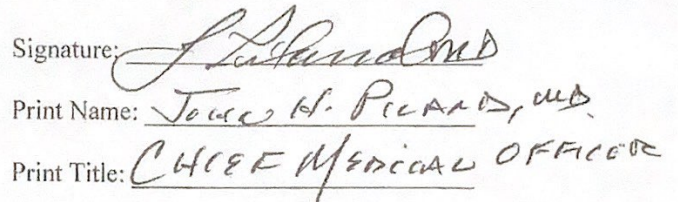 Signature: MD
Print Name: John H. Pilard, MD.
Print Title: CHIEF MEDICAL OFFICER